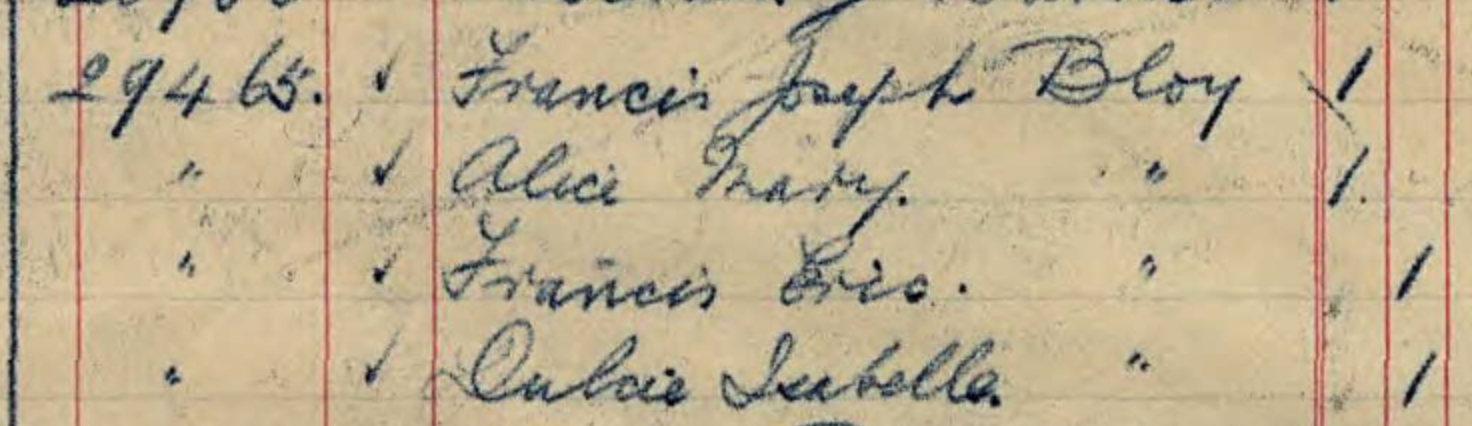 29465. ✓ Francis Joseph Bloy 1
" ✓ Alice Mary. " 1.
" ✓ Francis Eric. " 1
" ✓ Dulcie Isabella. " 1